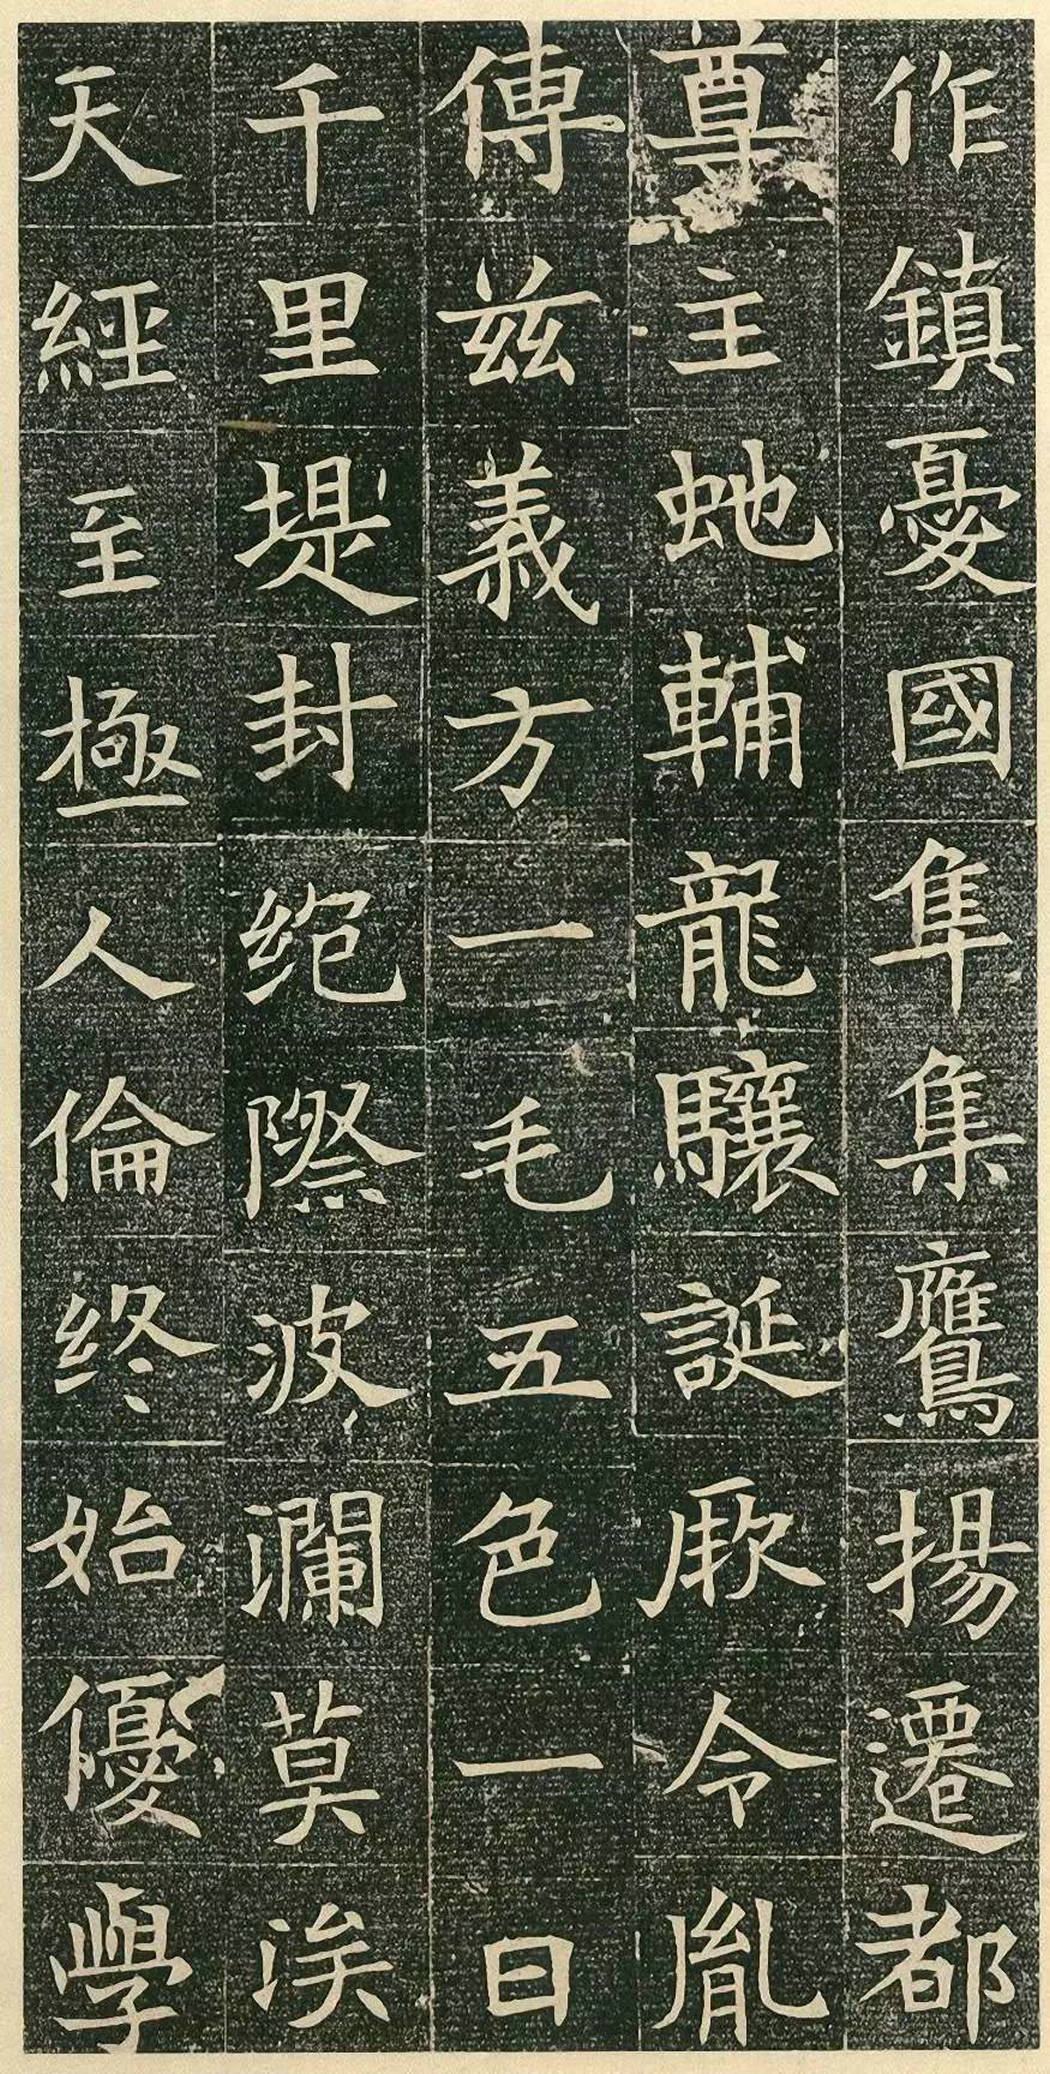 作鎮憂國隼集鷹揚遷都
尊主虵輔龍驤誕厥令胤
傳茲義方一毛五色一日
千里堤封绝際波瀾莫涘
天經至極人倫终始優學